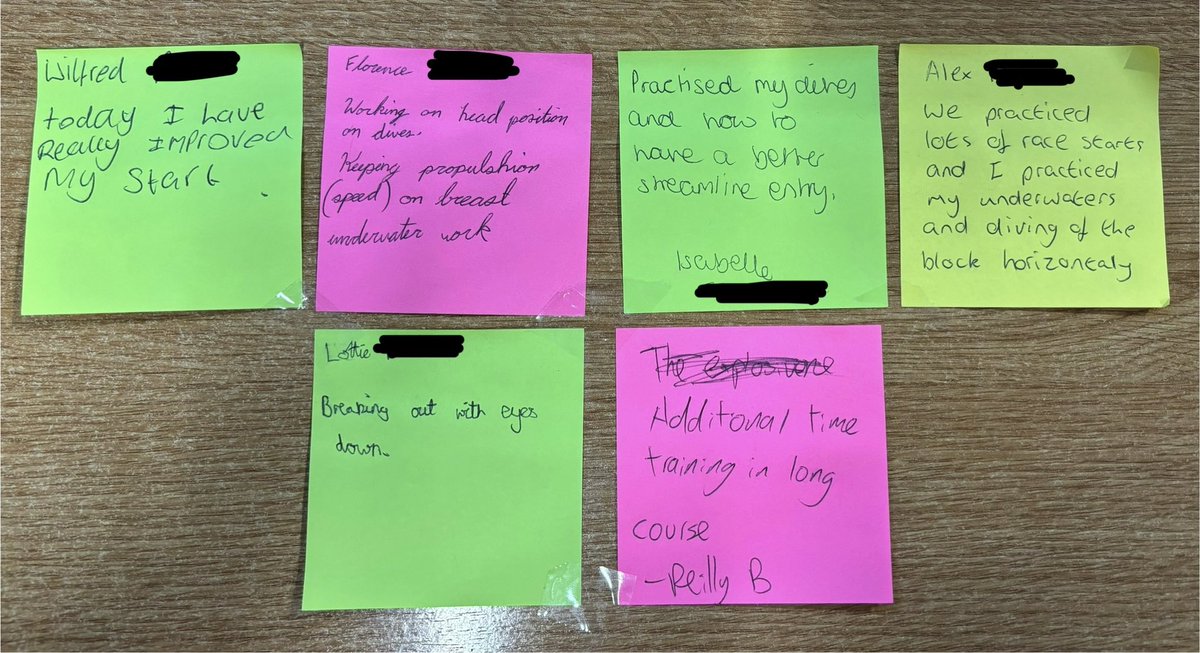 Wilfred
today I have
Really IMPROVED
My Start.
Florence
Working on head position
on dives.
Keeping propulshion
(speed) on breast
underwater work
Practised my dives
and how to
have a better
streamline entry.
Isabelle
Alex
We practiced
lots of race starts
and I practiced
my underwaters
and diving of the
block horizontaly
Lottie
Breaking out with eyes
down.
The
Additonal time
training in long
course
-Reilly B